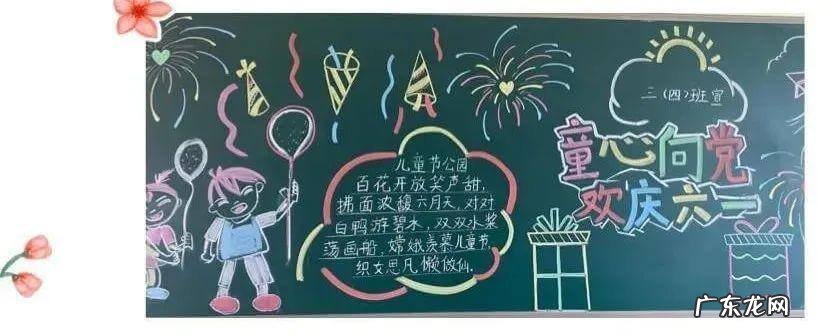 三(四)班宣
童心向党
欢庆六一
儿童节公园
百花开放笑声甜,
拂面浓馥六月天,对对
白鸭游碧水,双双水桨
荡画船,嫦娥羡慕儿童节,
织女思凡懒做仙。
广东龙网